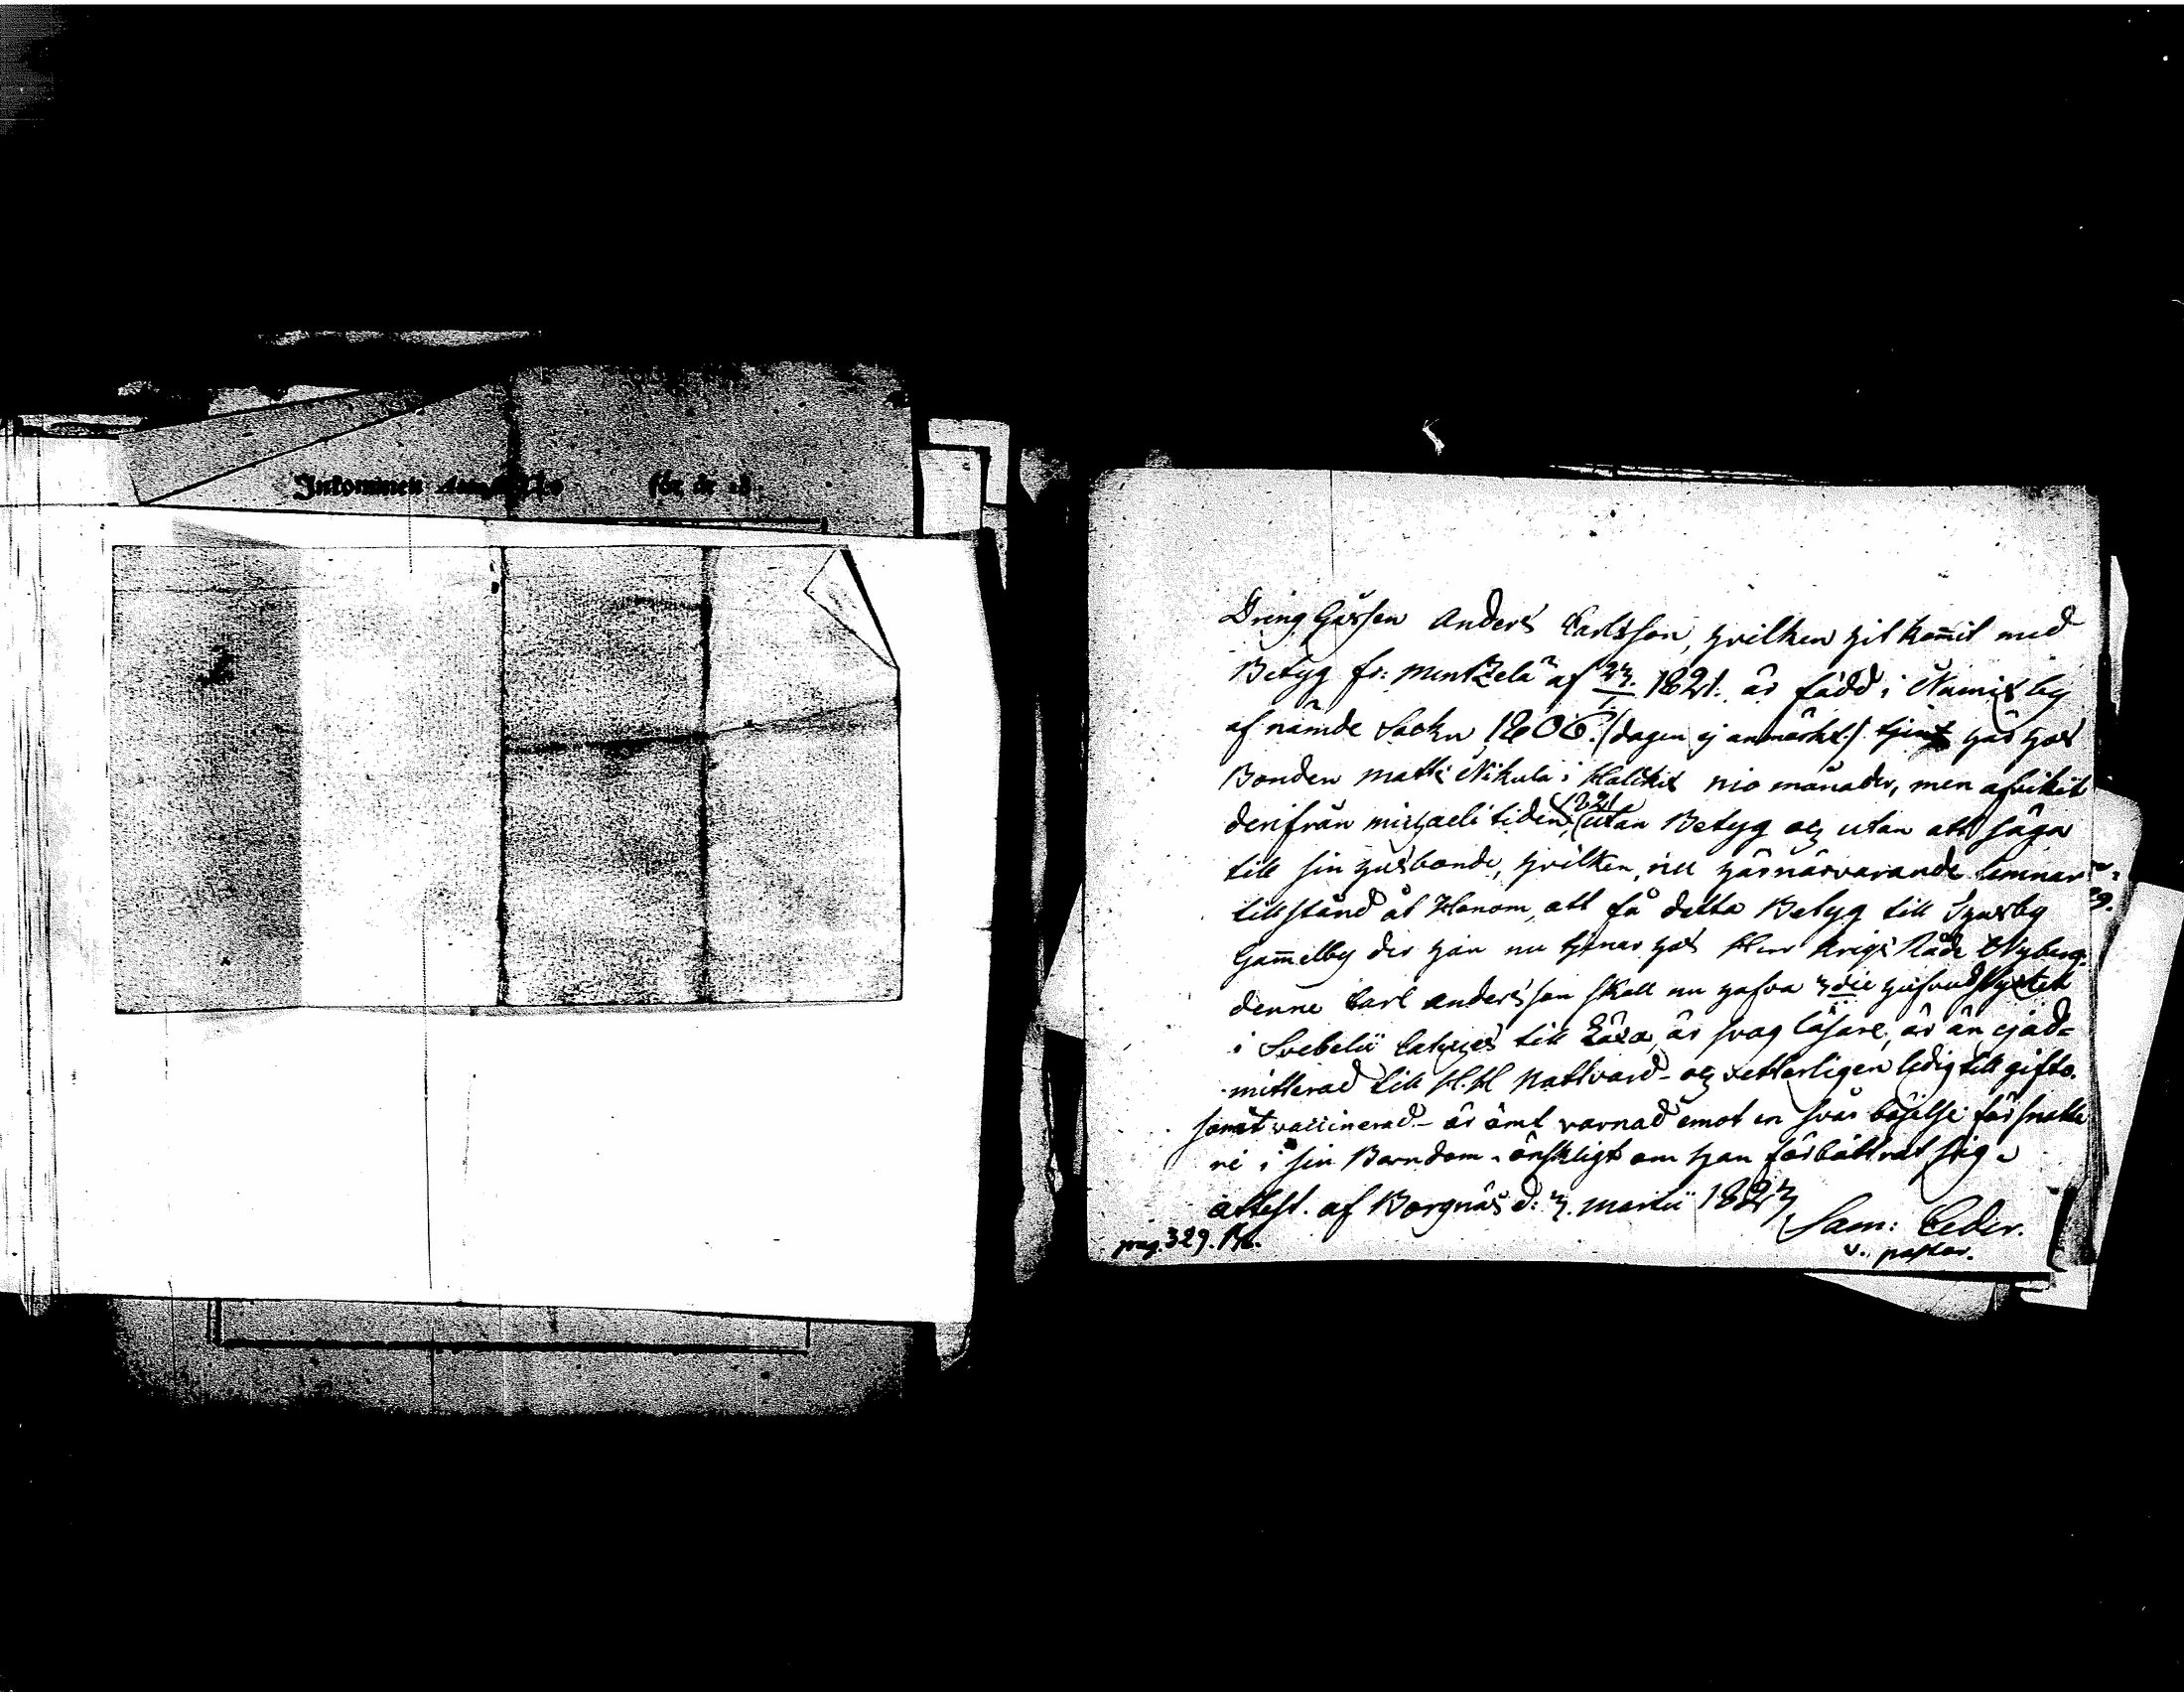 Inkommen för år 18
Dreng Gåssen Anders Carlsson, hvilken hit kom̄it med
Betyg fr: Mentzelä af 1821. är född i Numis by
af nämde Sokn 1806. (dagen ej anmärkt) tjent här hos
Bonden Matts Nikula i Halkis nio månader, men afvikit
derifrån michaeli tiden 1821 utan Betyg och utan att säga
till sin husbonde, hvilken, nu härnärvarande lemnar
tillstånd åt Honom, att få detta Betyg till
Gam̄elby der han nu tjenar hos Herr Krigs Råde Nyberg.
denne Carl Andersson skall nu hafva 3die hufvudstycket
i Svebelii Cateches till Läxa, är svag läsare, är än ej ad=
mitterad till H.H Nattvard - och vetterligen ledig till gifte.
samt vaccinerad - är ömt varnad emot en svår böjelse för snatte
ri i sin Barndom - önskligt om han förbättrat sig -
attest. af Borgnäs d: 3. Martii 1823
Sam: Ceder.
v. pastor.
pag. 329.